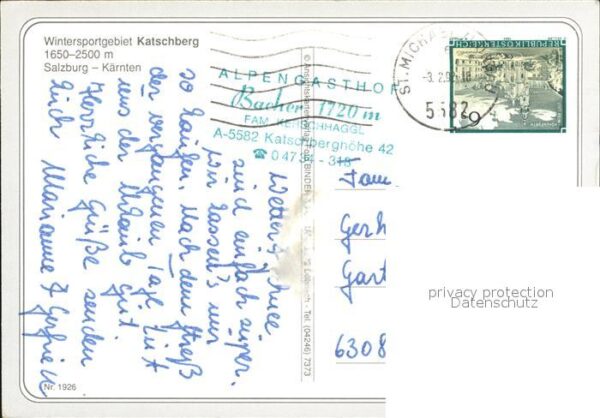 Wintersportgebiet Katschberg
1650–2500 m
Salzburg – Kärnten
ALPENGASTHOF
Bacher 1720 m
FAM. KERSCHHAGGL
A-5582 Katschberghöhe 42
☎ 0 47 34 - 318
ST. MICHAEL
-3.2.9
5582
REPUBLIK ÖSTERREICH
Wetter & Schnee
sind einfach super.
Wir lassen's nur
so laufen. Nach dem Streß
der vergangenen Tage tut
uns der Urlaub gut
Herrliche Grüße senden
Euch Marianne &
Fam
Gerh
Gart
6308
privacy protection
Datenschutz
Tel. (04246) 7373
Nr. 1926